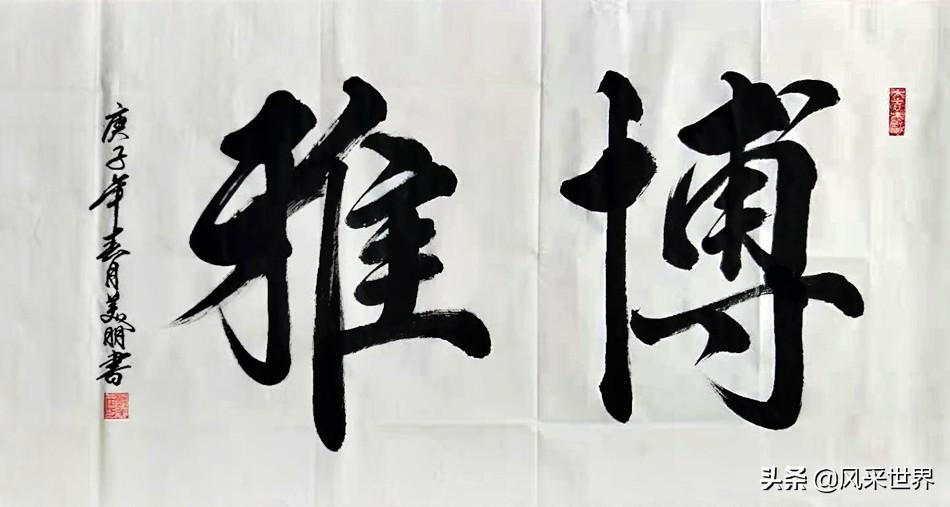 博雅
庚子年春月美朋書
头条 @风采世界